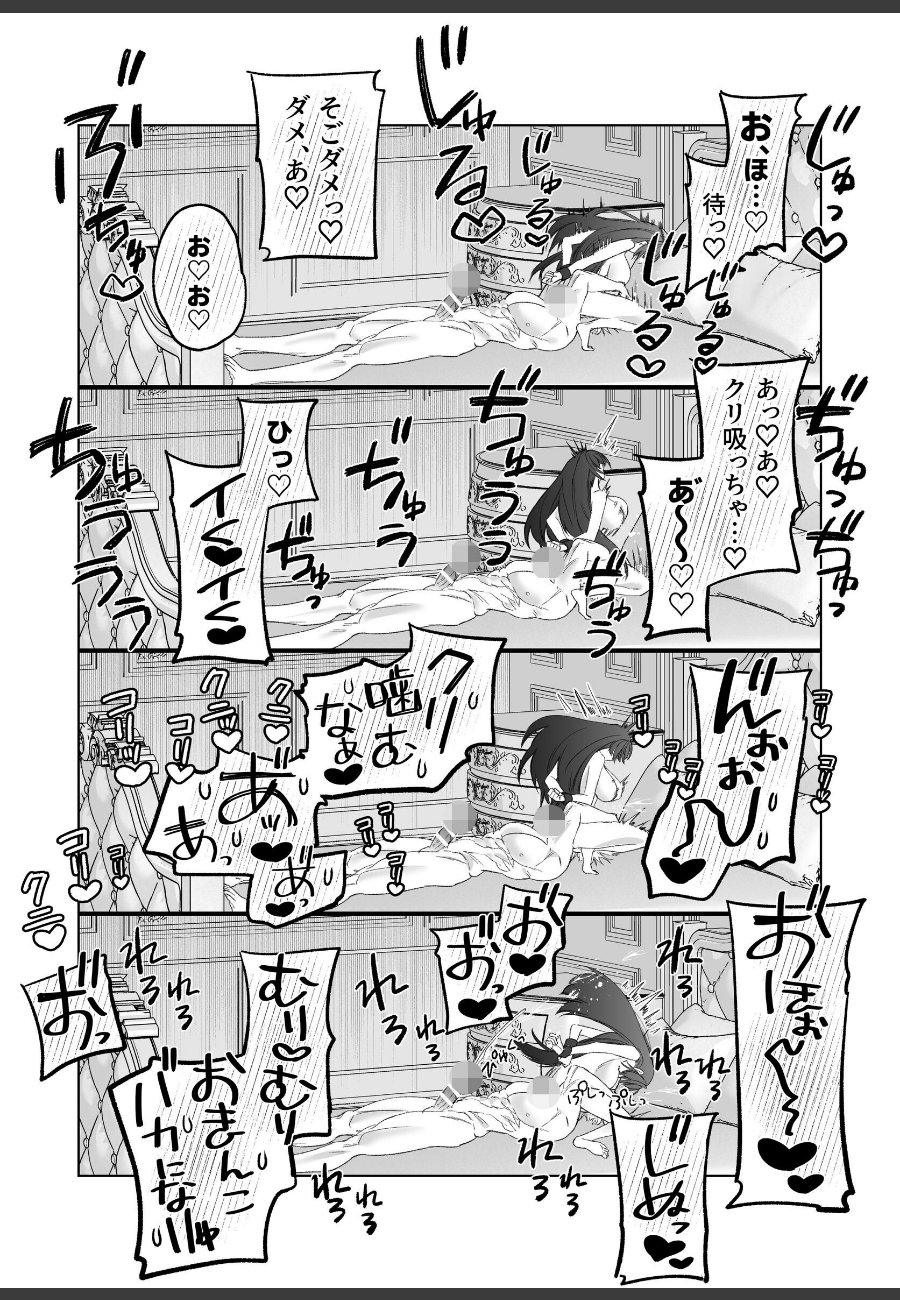 お、ほ…♡
待っ♡
じゅっ♡
じゅる♡
じゅるる♡
じゅる♡
じゅるる♡
そごダメっ♡
ダメ、あ♡
お♡お♡
ぶ
ちゅ♡
あっ♡あ♡
クリ吸っちゃ…♡
あ゛〜〜♡♡
ぢゅっ
ぢゅっ
ぢゅう
ぢゅうう
ぢゅうう
ぢゅっ
ひっ♡
イく♥イく♥
ちゅううう
んぉおお〜〜♥
コリ♡
コリ♡
コリ♡
コリ♡
コリ♡
クリ
噛む
なぁ♥
クニ♡
クニッ♡
コリッ♡
コリ♡
コリ♡
あ゛ッ♥
あっ
あ゛♥
コリ♡
コリ♡
コリ♡
コリ♡
クニ♡
おほぉ〜〜〜♥
じぬっ♥♥
お゛♥
お゛っ♥
れろ
れろ
れろ
れろ
れろ
れろ
れろ
れろ
れろ
れろ
ぷしっ
ぷしっ
ぴゅ
むり♥むり
おまんこ
バカになりゅ
お゛っ